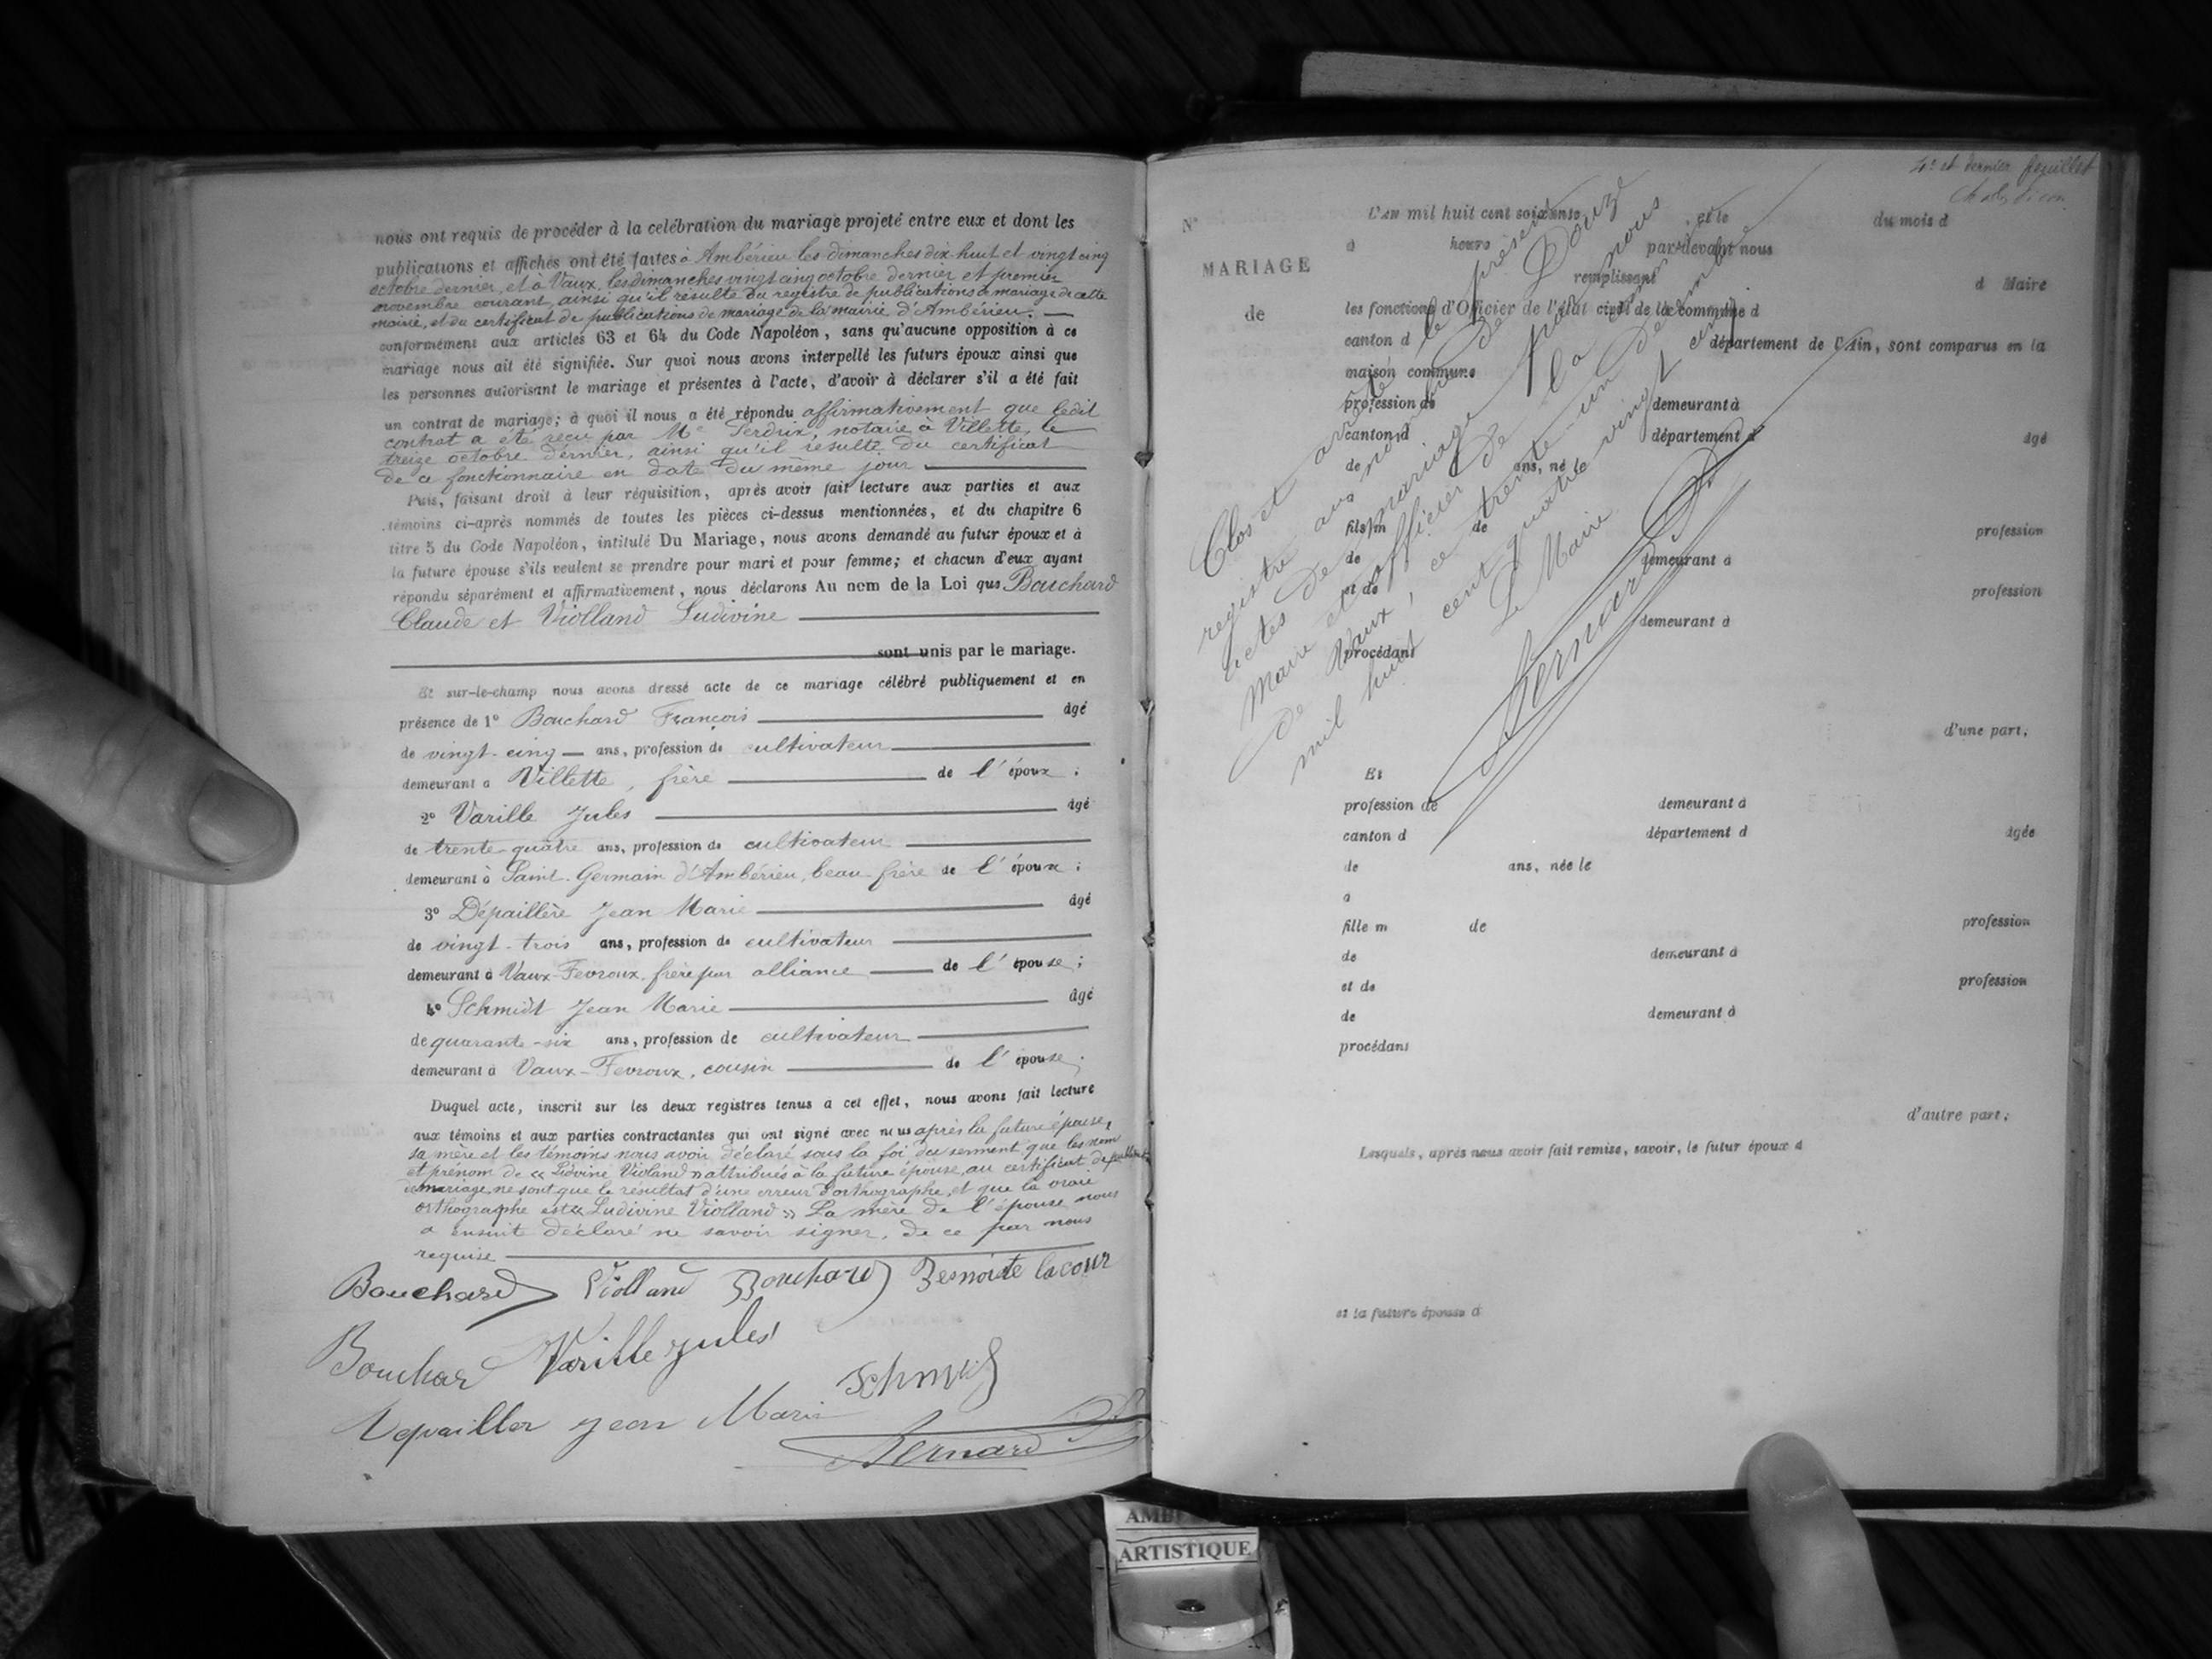 nous ont requis de procéder à la celébration du mariage projeté entre eux et dont les
publications et affiches ont été faites à Ambérieu les dimanches dix huit et vingt cinq
octobre dernier, et à Vaux, les dimanches vingt cinq octobre dernier et premier
novembre courant, ainsi qu'il résulte du registre de publications de mariage de cette
mairie, et du certificat de publications de mariage de la mairie d'Ambérieu. —
conformément aux articles 63 et 64 du Code Napoléon, sans qu'aucune opposition à ce
mariage nous ait été signifiée. Sur quoi nous avons interpellé les futurs époux ainsi que
les personnes autorisant le mariage et présentes à l'acte, d'avoir à déclarer s'il a été fait
un contrat de mariage; à quoi il nous a été répondu affirmativement que ledit
contrat a été reçu par Me Perdrix, notaire à Villette, le
treize octobre dernier, ainsi qu'il résulte du certificat
de ce fonctionnaire en date du même jour
Puis, faisant droit à leur réquisition, après avoir fait lecture aux parties et aux
témoins ci-après nommés de toutes les pièces ci-dessus mentionnées, et du chapitre 6
titre 5 du Code Napoléon, intitulé Du Mariage, nous avons demandé au futur époux et à
la future épouse s'ils veulent se prendre pour mari et pour femme; et chacun d'eux ayant
répondu séparément et affirmativement, nous déclarons Au nom de la Loi que Bouchard
Claude et Violland Ludivine
sont unis par le mariage.
Et sur-le-champ nous avons dressé acte de ce mariage célébré publiquement et en
présence de 1° Bouchard François âgé
de vingt-cinq — ans, profession de cultivateur
demeurant a Villette, frère de l'époux;
2° Varille Jules âgé
de trente quatre ans, profession de cultivateur
demeurant à Saint-Germain d'Ambérieu, beau frère de l'époux;
3° Dépaillère Jean Marie âgé
de vingt-trois ans, profession de cultivateur
demeurant à Vaux-Fevroux, frère par alliance de l'épouse;
4° Schmidt Jean Marie âgé
de quarante-six ans, profession de cultivateur
demeurant à Vaux-Fevroux, cousin de l'épouse.
Duquel acte, inscrit sur les deux registres tenus a cet effet, nous avons fait lecture
aux témoins et aux parties contractantes qui ont signé avec nous après la future épouse,
sa mère et les témoins nous avoir déclaré sous la foi du serment que les nom
et prénom de « Lidvine Violand » attribués à la future épouse, au certificat de
de mariage, ne sont que le résultat d'une erreur d'orthographe, et que la vraie
orthographe est « Ludivine Violland » La mère de l'épouse nous
a ensuite déclaré ne savoir signer, de ce par nous
requise
Bouchard Violland Bouchard Besnoite lacour
Bouchar Varille Jules
Schmit
Depailler Jean Marie
Bernard
4e et dernier feuillet
N°
MARIAGE
de
L'an mil huit cent soixante et le du mois d
à heures par-devant nous
remplissant
d Maire
les fonctions d'Officier de l'état civil de la commune d
canton d département de l'Ain, sont comparus en la
maison commune
profession de demeurant à
canton d département d âgé
de ans, né le
à
fils m de profession
de demeurant à
et de profession
demeurant à
procédant
d'une part,
Clos et arrêté le présent
registre aux nombre de Douze
actes de mariage par nous
Maire et officier de la commune
de Vaux, ce trente-un décembre
mil huit cent quatre vingt cinq
Le Maire
Bernard
Et
profession de demeurant à
canton d département d âgée
de ans, née le
a
fille m de profession
de demeurant à
et de profession
de demeurant à
procédant
d'autre part;
Lesquels, après nous avoir fait remise, savoir, le futur époux d
et la future épouse d
ARTISTIQUE